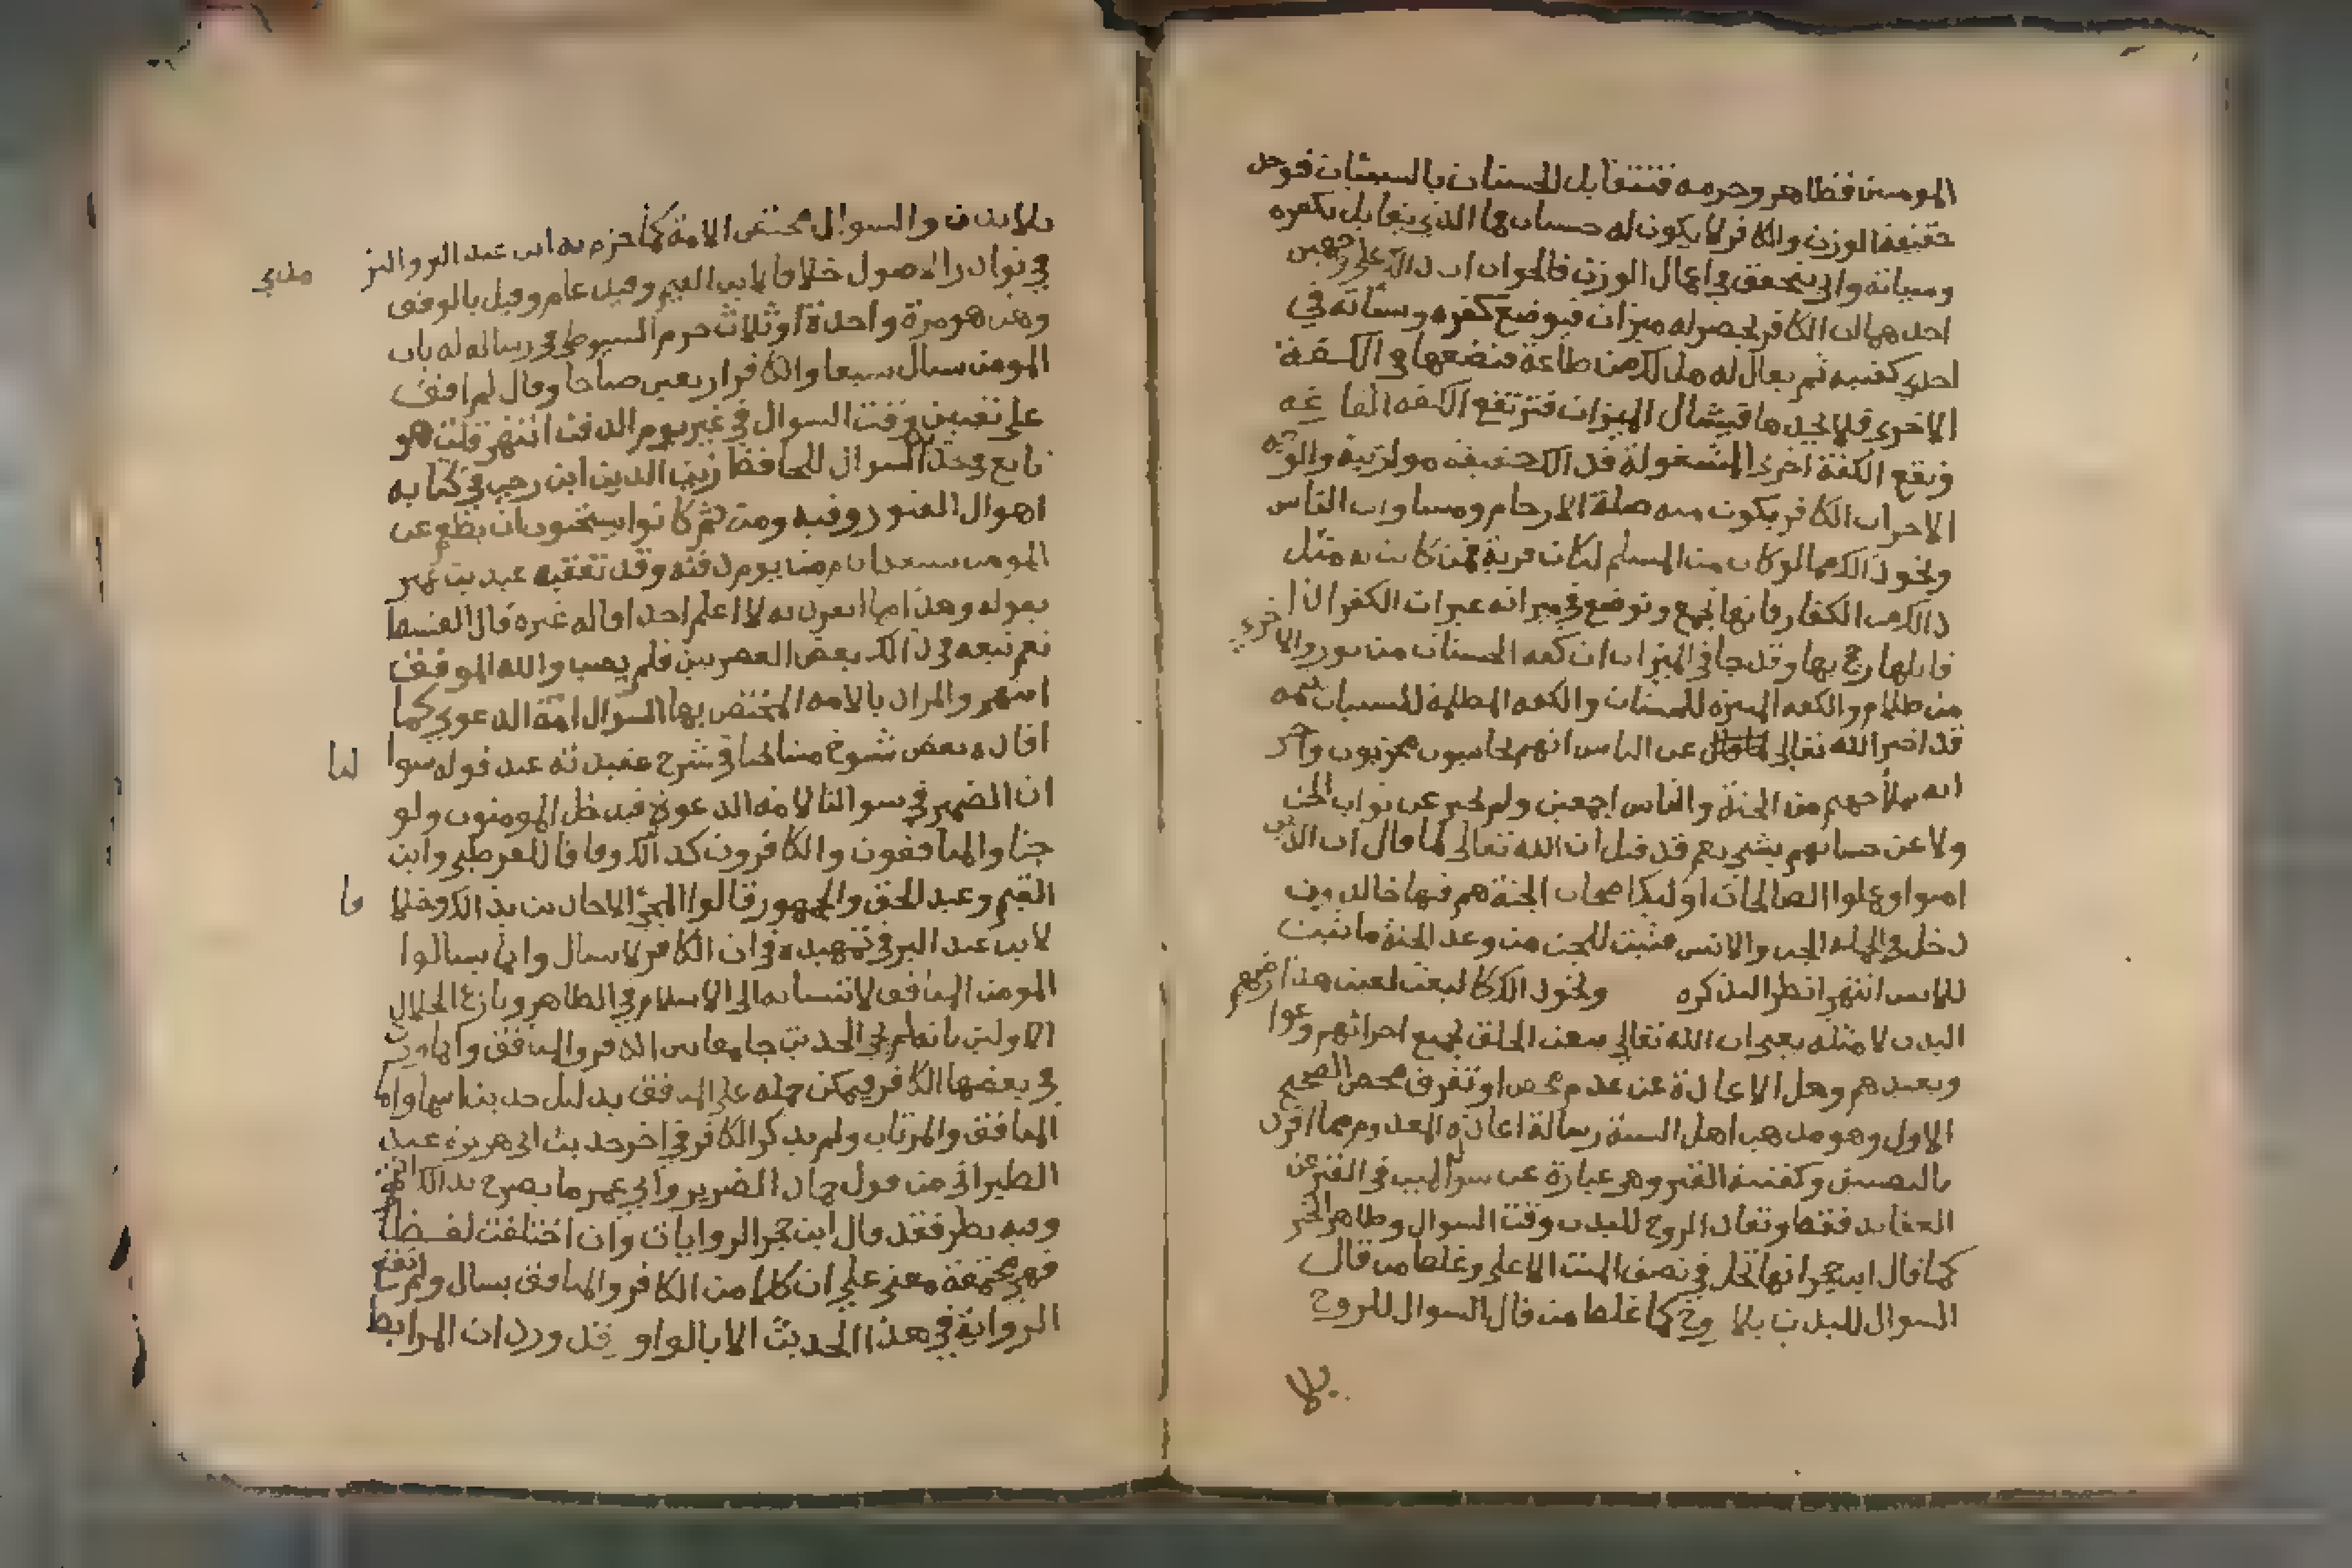 المومن فظاهر وحرمه فتتقابل الحسنات بالسيئات فوجد
حقيقة الوزن والكافر لا يكون له حسنات فما الذي يقابل بكفره
وسياته واني يتحقق في اعمال الوزن فالجواب ان ذالك على وجهين
احدهما ان الكافر يحضر له ميزان فيوضع كفره وسياته في
احدي كفتيه ثم يقال له هل لك من طاعة فنضعها في الكفة
الاخري فلا يجدها فيشال الميزان فترتفع الكفه الفارغه
وتقع الكفة اخري المشغولة
الاخر ان الكافر يكون منه صلة الارحام ومساوات الناس
ونحو ذالك مما لو كان من المسلم لكان قربة فمن كانت له مثل
ذالك من الكفار فانها تجمع وتوضع في ميزانه غير ان الكفر اذا
قابلها رجح بها وقد جا في الميزان ان كفه الحسنات من نور والاخري
من ظلام والكفه النيره للحسنات والكفه المظلمه للسيات
قد اخبر الله تعالى عن الناس انهم محاسبون مجزيون واخبر
انه يملأ جهنم من الجنة والناس اجمعين ولم يخبر عن ثواب الجن
ولا عن حسابهم بشي نعم قد قيل ان الله تعالى لما قال ان الذين
امنوا وعملوا الصالحات اوليك اصحاب الجنة هم فيها خالدون
دخل في الجمله الجن والانس فثبت للجن من وعد الجنة ما ثبت
للانس انتهر انظر التذكره ونحو ذالك كالبعث لعين هذا
البدن لا مثله يعني ان الله تعالى يبعث الخلق بجميع اجزائهم
ويعيدهم وهل الاعادة عن عدم محض او تفرق محض الصحيح
الاول وهو مذهب اهل السنة رسالة اعادة المعدوم مما افرد
بالتصنيف وكفتنة القبر وهي عبارة عن سوال الميت في القبر عن
العقايد فقط وتعاد الروح للبدن وقت السوال وظاهر الخبر
كما قال ابن حجر انها تحل في نصف الميت الاعلى وغلط من قال
السوال للبدن بلا روح كما غلط من قال السوال للروح
بلا
بلا بدن والسوال مختص الامة كما جزم به ابن عبد البر والتر مذي
في نوادر الاصول خلافا لابن القيم وقيل عام وقيل بالوقف
وهل هو مرة واحدة او ثلاث جزم السيوطي في رسالة له بان
المومن يسال سبعا والكافر اربعين صباحا وقال لم اقف
على تعيين وقت السوال في غير يوم الدفن انتهر قلت هو
تابع في ذالك السوال للحافظ زين الدين ابن رجب في كتابه
اهوال القبور وفيه ومن ثم كانوا يستحبون ان يطعم عن
المومن سبعة ايام من يوم دفنه وقد تعقبه عبيد بن عمير
بقوله وهذا مما انفرد به لا اعلم احدا قاله غيره قال
نعم تبعه في ذالك بعض العصريين فلم يصب والله الموفق
انتهر والمراد بالامه المختص بها السوال امة الدعوي كما
افاده بعض شيوخ مشايخنا في شرح عقيدته عند قوله سوا لنا
ان الضمير في سوالنا لامة الدعوة فيدخل المومنون ولو
جنا والمنافقون والكافرون كذالك وفاقا للقرطبي وابن
القيم وعبد الحق والجمهور قالوا لمجي الاحاديث بذالك وخلا فا
لابن عبد البر في تمهيده في ان الكافر لا يسال وانما يسالوا
المومن المنافق لانتسابه الى الاسلام في الظاهر ونازع الجلال
الاولين بانه لم يجي الحديث جامعا بين الكافر والمنافق وانما ورد
في بعضها الكافر فيمكن حمله على المنافق بدليل حديث اسما واما
المنافق والمرتاب ولم يذكر الكافر في اخر حديث ابي هريرة عند
الطبراني من قول حماد الضرير وابي عمر ما يصرح بذالك انتهر
وفيه نظر فقد قال ابن حجر الروايات وان اختلفت لفظا
فهي مجتمعة معنى على ان كلا من الكافر والمنافق يسال
الرواية في هذا الحديث الا بالواو وقد ورد ان المرابط